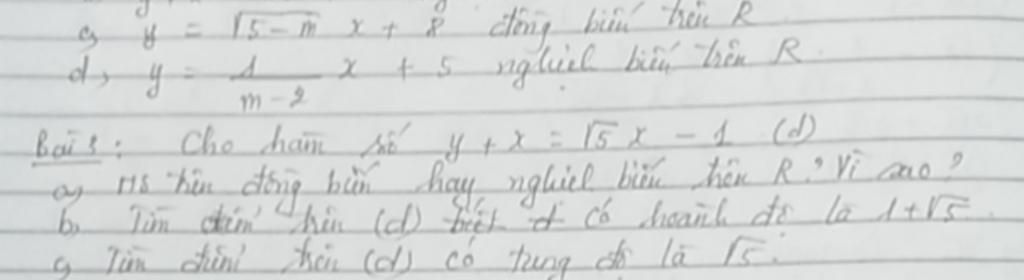 c, y = √5-m x + 8 đồng biến trên R
d, y = 1/m-2 x + 5 nghịch biến trên R
Bài 3: Cho hàm số y + x = √5 x - 1 (d)
a, HS trên đồng biến hay nghịch biến trên R? Vì sao?
b, Tìm điểm trên (d) biết có hoành độ là 1+√5.
c, Tìm điểm trên (d) có tung độ là √5.